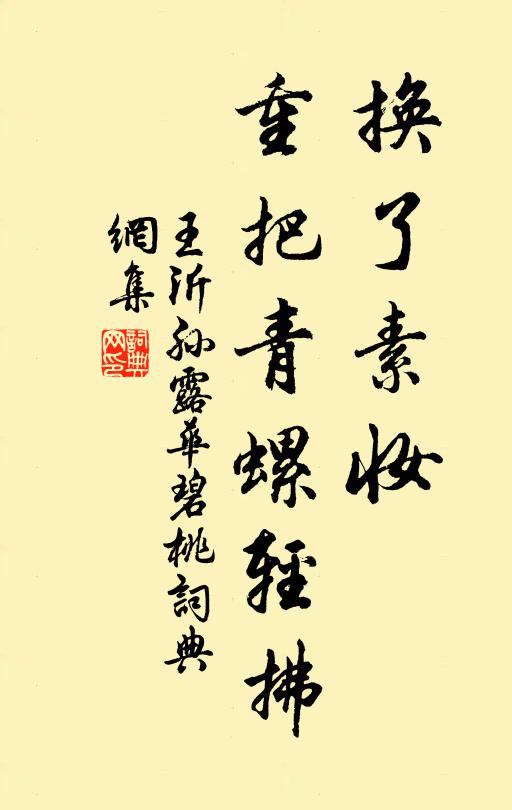 換了素妝
重把青螺輕拂
王沂孫露華碧桃詞典
網集
詞典
网印